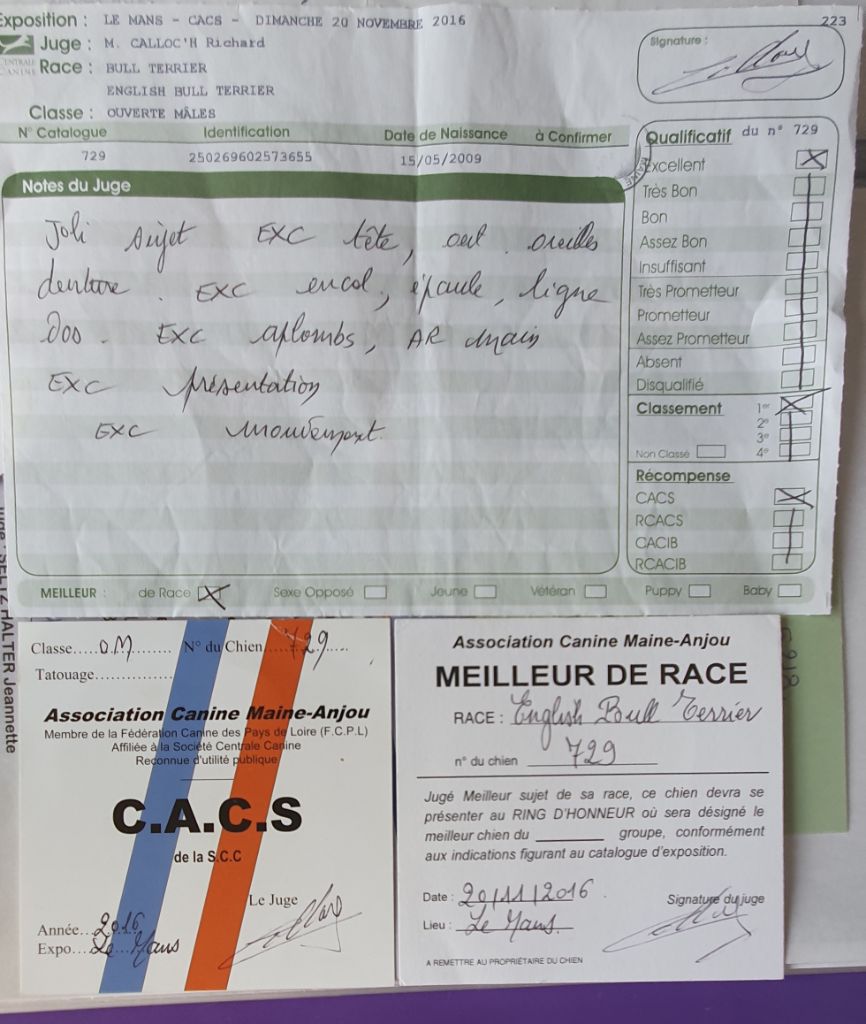 Exposition : LE MANS - CACS - DIMANCHE 20 NOVEMBRE 2016
223
Juge : M. CALLOC'H Richard
CENTRALE
CANINE
Race : BULL TERRIER
ENGLISH BULL TERRIER
Classe : OUVERTE MÂLES
Signature :
N° Catalogue Identification Date de Naissance à Confirmer
729 250269602573655 15/05/2009
Notes du Juge
Joli sujet EXC tête, oeil oreilles
denture. EXC encol, épaule, ligne
Dos. EXC aplombs, AR main
EXC présentation
EXC mouvement.
Qualificatif du n° 729
Excellent
Très Bon
Bon
Assez Bon
Insuffisant
Très Prometteur
Prometteur
Assez Prometteur
Absent
Disqualifié
Classement 1er
2e
3e
Non Classé 4e
Récompense
CACS
RCACS
CACIB
RCACIB
MEILLEUR : de Race Sexe Opposé Jeune Vétéran Puppy Baby
HALTER Jeannette
Classe.....O.M........ N° du Chien....729.....
Tatouage...............
Association Canine Maine-Anjou
Membre de la Fédération Canine des Pays de Loire (F.C.P.L)
Affiliée à la Société Centrale Canine
Reconnue d'utilité publique
C.A.C.S
de la S.C.C
Le Juge
Année...2016
Expo...Le Mans
Association Canine Maine-Anjou
MEILLEUR DE RACE
RACE : English Bull Terrier
n° du chien 729
Jugé Meilleur sujet de sa race, ce chien devra se
présenter au RING D'HONNEUR où sera désigné le
meilleur chien du ________ groupe, conformément
aux indications figurant au catalogue d'exposition.
Date : 20/11/2016 Signature du juge
Lieu : Le Mans.
A REMETTRE AU PROPRIÉTAIRE DU CHIEN